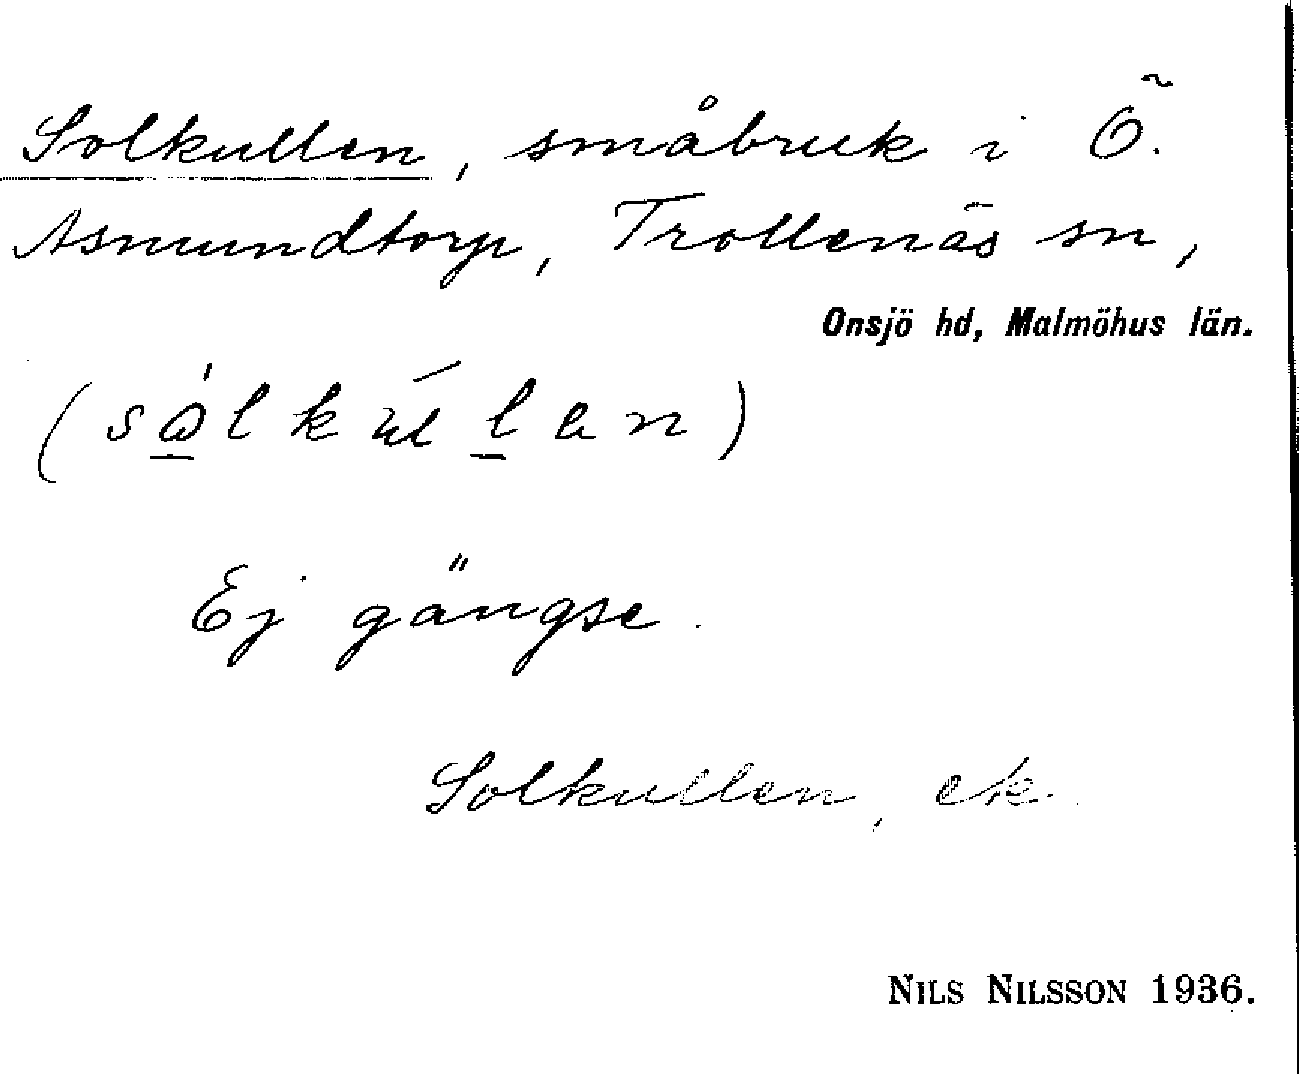 Solkullen, småbruk i Ö.
Asmundtorp, Trollenäs sn,
Onsjö hd, Malmöhus län.
(so̲lkul̲an)
Ej gängse.
Solkullen, ek.
NILS NILSSON 1936.